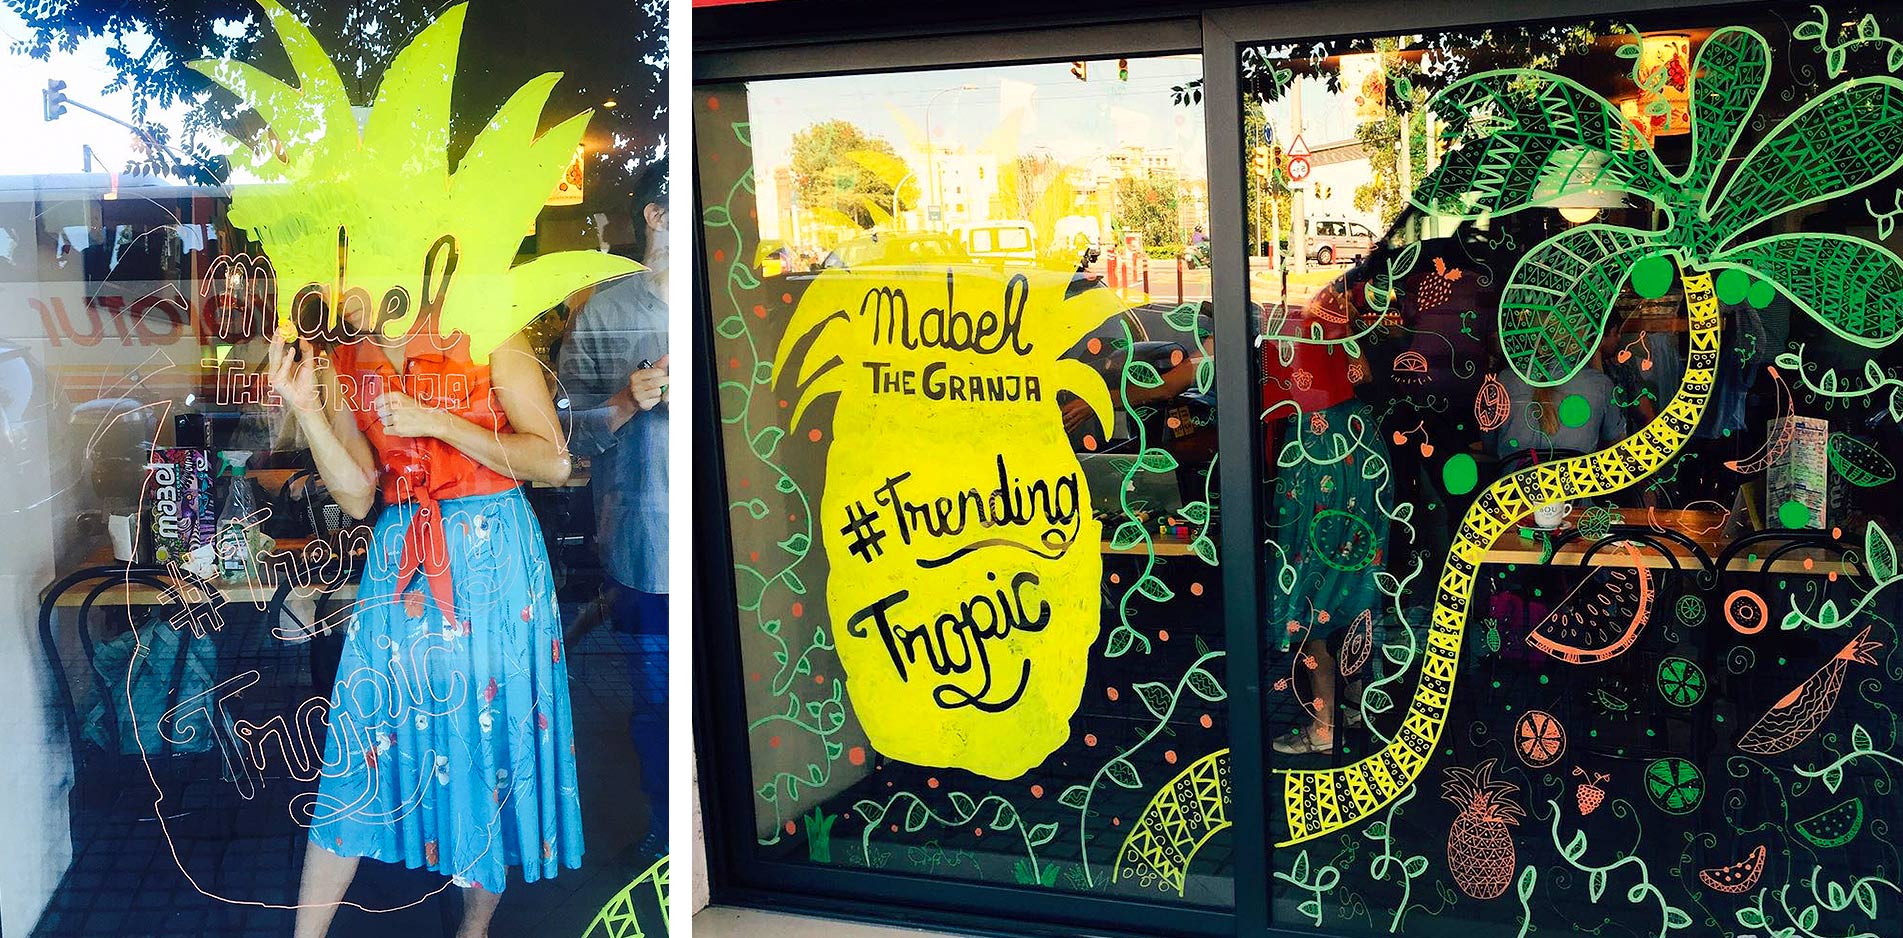 Mabel
THE GRANJA
#Trending
Tropic
mabel
Mabel
THE GRANJA
#Trending
Tropic